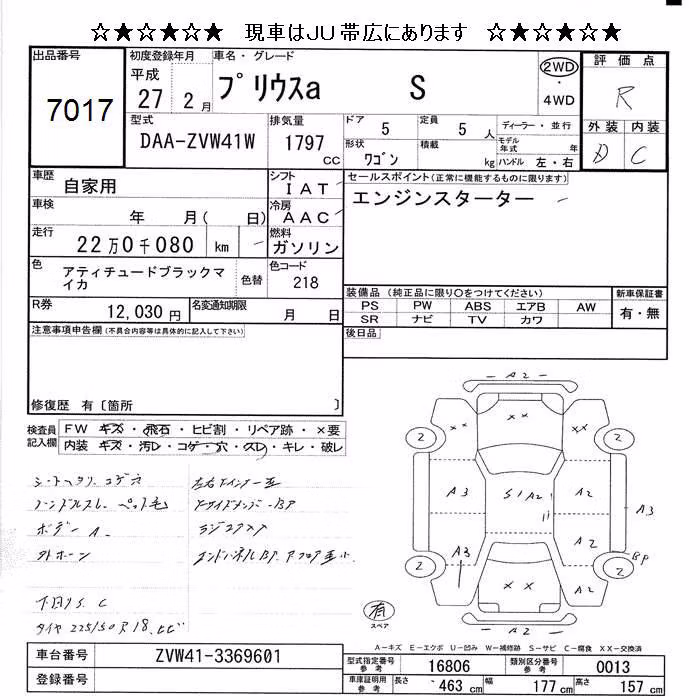 ☆★☆★☆★ 現車はJU帯広にあります ☆★☆★☆★
出品番号
7017
初度登録年月
平成
27 2月
車名・グレード
プリウスa S
2WD
・
4WD
評価点
R
外装 内装
D C
型式
DAA-ZVW41W
排気量
1797
cc
ドア 5
定員 5 人
形状 ワゴン
積載 kg
ディーラー・並行
モデル年式 年
ハンドル 左・右
車歴
自家用
シフト
IAT
セールスポイント(正常に機能するものに限ります)
エンジンスターター
車検
年 月( 日)
冷房
AAC
走行
22万0千080 km
燃料
ガソリン
色
アティチュードブラックマイカ
色替
色コード
218
R券
12,030円
名変通知期限
月 日
装備品 (純正品に限り○をつけてください)
PS PW ABS エアB AW
SR ナビ TV カワ
新車保証書
有・無
注意事項申告欄(不具合内容等は具体的に記入して下さい)
後日品
修復歴 有〔箇所 〕
検査員
記入欄
FW キズ・飛石・ヒビ割・リペア跡・×要
内装 キズ・汚レ・コゲ・穴・スレ・キレ・破レ
ハンドルスレ ペット毛
タイヤ 225/50R18.ヒビ
A2
××
2 2
A3 S1A2 A2
A3
A3 A2
2 2
BP
××
A2
有
スペア
A-キズ E-エクボ U-凹み W-補修跡 S-サビ C-腐食 XX-交換済
車台番号
ZVW41-3369601
型式指定番号
参考
16806
類別区分番号
参考
0013
登録番号
車庫証明用
参考
長さ 463cm
幅 177cm
高さ 157cm